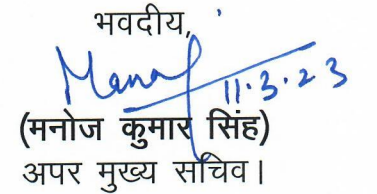 भवदीय,
Manoj
11.3.23
(मनोज कुमार सिंह)
अपर मुख्य सचिव।